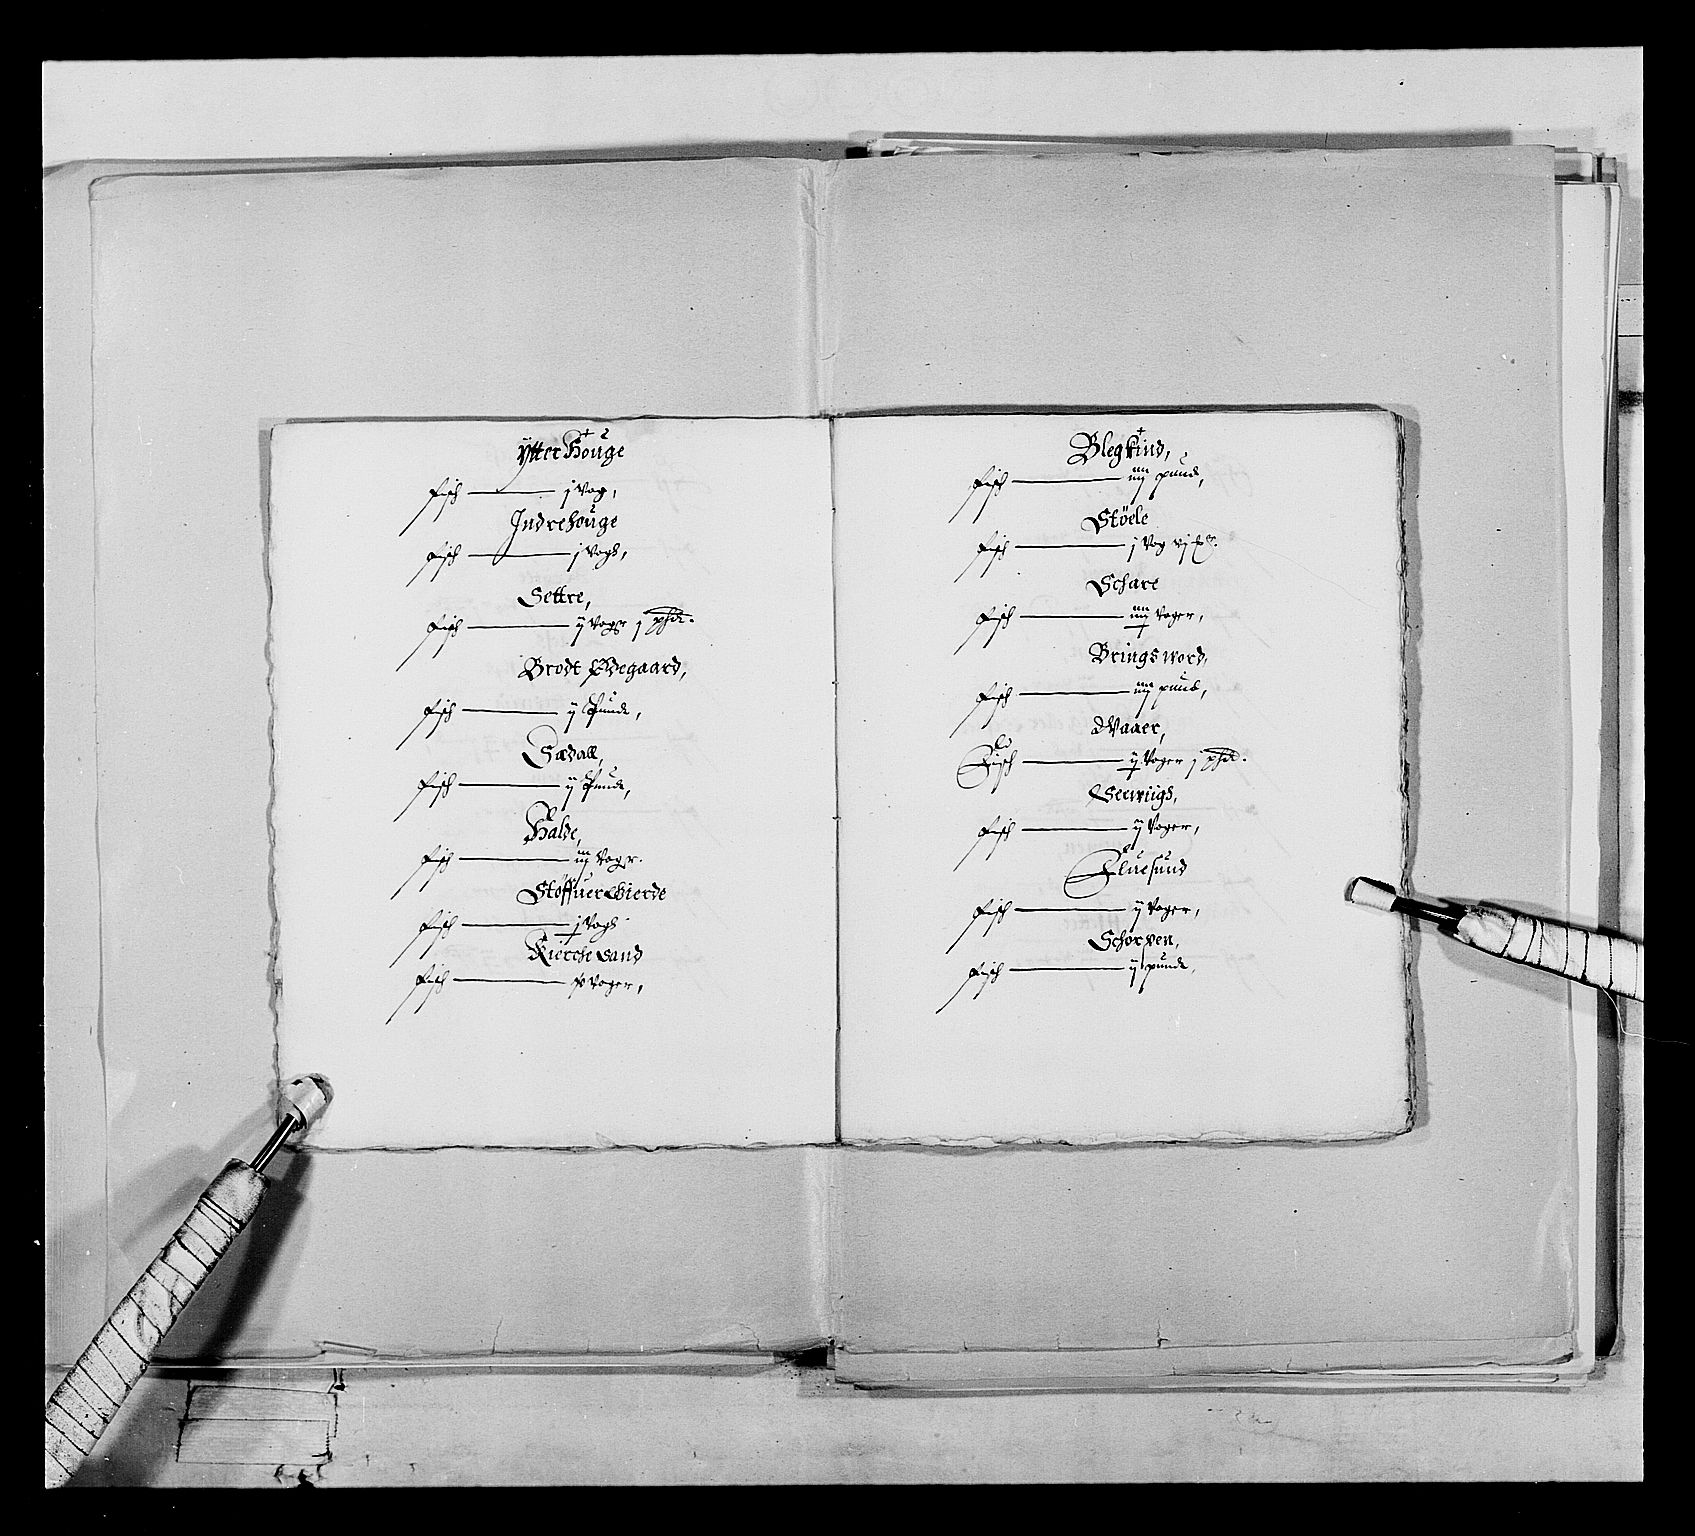 Ytter Houge
fisch — j Vog,
Indrehouge
fisch — j Vogh,
Settre,
fisch — ij Voger j
Brodt Ødegaard,
fisch — ij Punde,
Sædall,
fisch — ij Punde,
Halde,
fisch — iiij Voger.
Støffuer
fisch — j Vogh
Kierchesand
fisch — Voger,
Blegkind,
fisch — iiij pund,
Støele
fisch — j Vog vj
Schare
fisch — iiij Voger,
Bringsword,
fisch — iiij pund,
Waaer,
Fisch — ij Voger j
fisch — ij Voger,
Fluesund
fisch — ij Voger,
Schorpen,
fisch — ij punde,